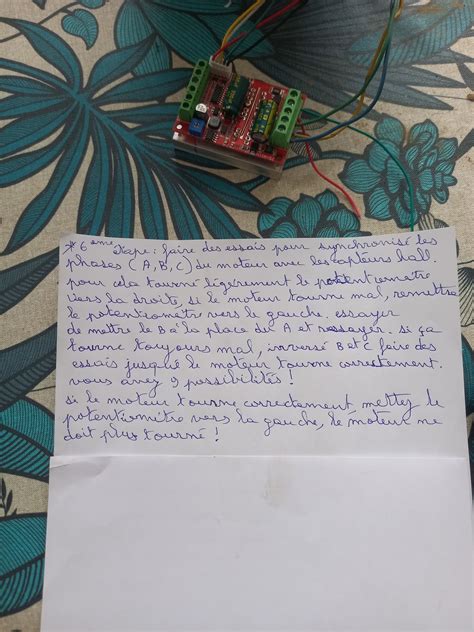 * 6ème Etape : faire des essais pour synchronisé les
phases (A, B, C) du moteur avec les capteurs hall.
pour cela tourné légèrement le potentiomètre
vers la droite, si le moteur tourne mal, remettre
le potentiomètre vers le gauche. essayer
de mettre le B à la place du A et réssayer. si ça
tourne toujours mal, inversé B et C faire des
essais jusqu'à le moteur tourne correctement.
vous avez 9 possibilités !
si le moteur tourne correctement, mettez le
potentiomètre vers la gauche, le moteur ne
doit plus tourné !